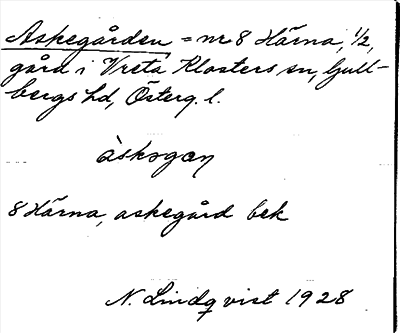 Askegården = nr 8 Härna, 1/2,
gård i Vreta Klosters sn, Gull-
bergs hd, Österg. l.
àskogan
8 Härna, askegård bek
N. Lindqvist 1928